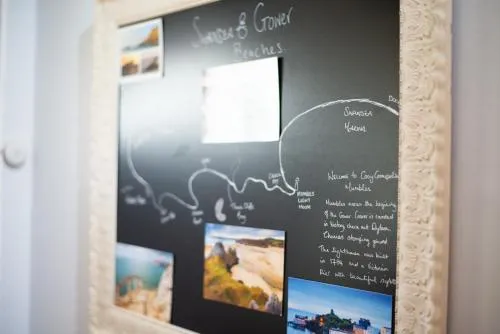 Swansea & Gower
Beaches
Swansea
Marina
Mumbles
Light
House
Three Cliff
Bay
Welcome to Cosy Cosmopolitan
Mumbles
Mumbles marks the beginning
of the Gower Gower is cloaked
in history check out Dylan
Thomas stomping ground
The lighthouse was built
in 1794 and a Victorian
Pier with beautiful sights